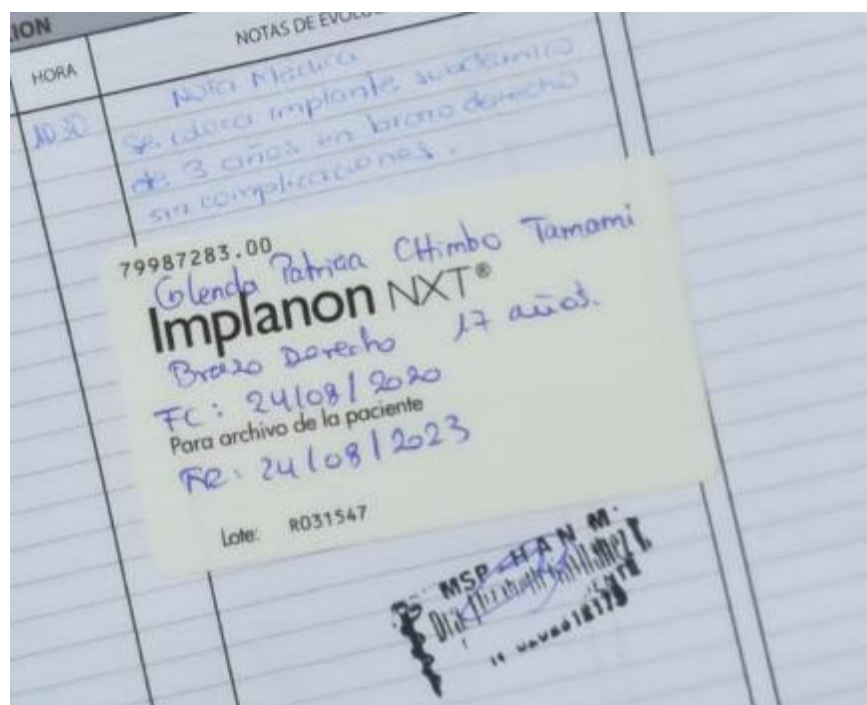 ION
NOTAS DE EVOLUC
HORA
Nota Médica
10:30
Se coloca implante subdérmico
de 3 años en brazo derecho
sin complicaciones.
79987283.00
Glenda Patricia CHimbo Tamami
Implanon NXT®
Brazo Derecho 17 años.
FC: 24/08/2020
Para archivo de la paciente
FR: 24/08/2023
Lote: R031547
MSP HAN M.